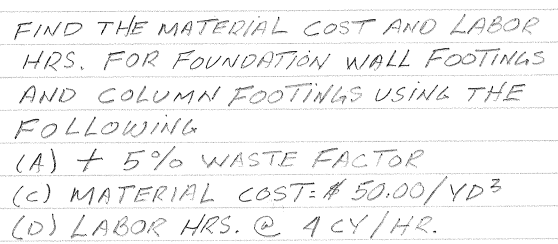 FIND THE MATERIAL COST AND LABOR
HRS. FOR FOUNDATION WALL FOOTINGS
AND COLUMN FOOTINGS USING THE
FOLLOWING
(A) + 5% WASTE FACTOR
(C) MATERIAL COST: $ 50.00/YD³
(D) LABOR HRS. @ 4 CY/HR.